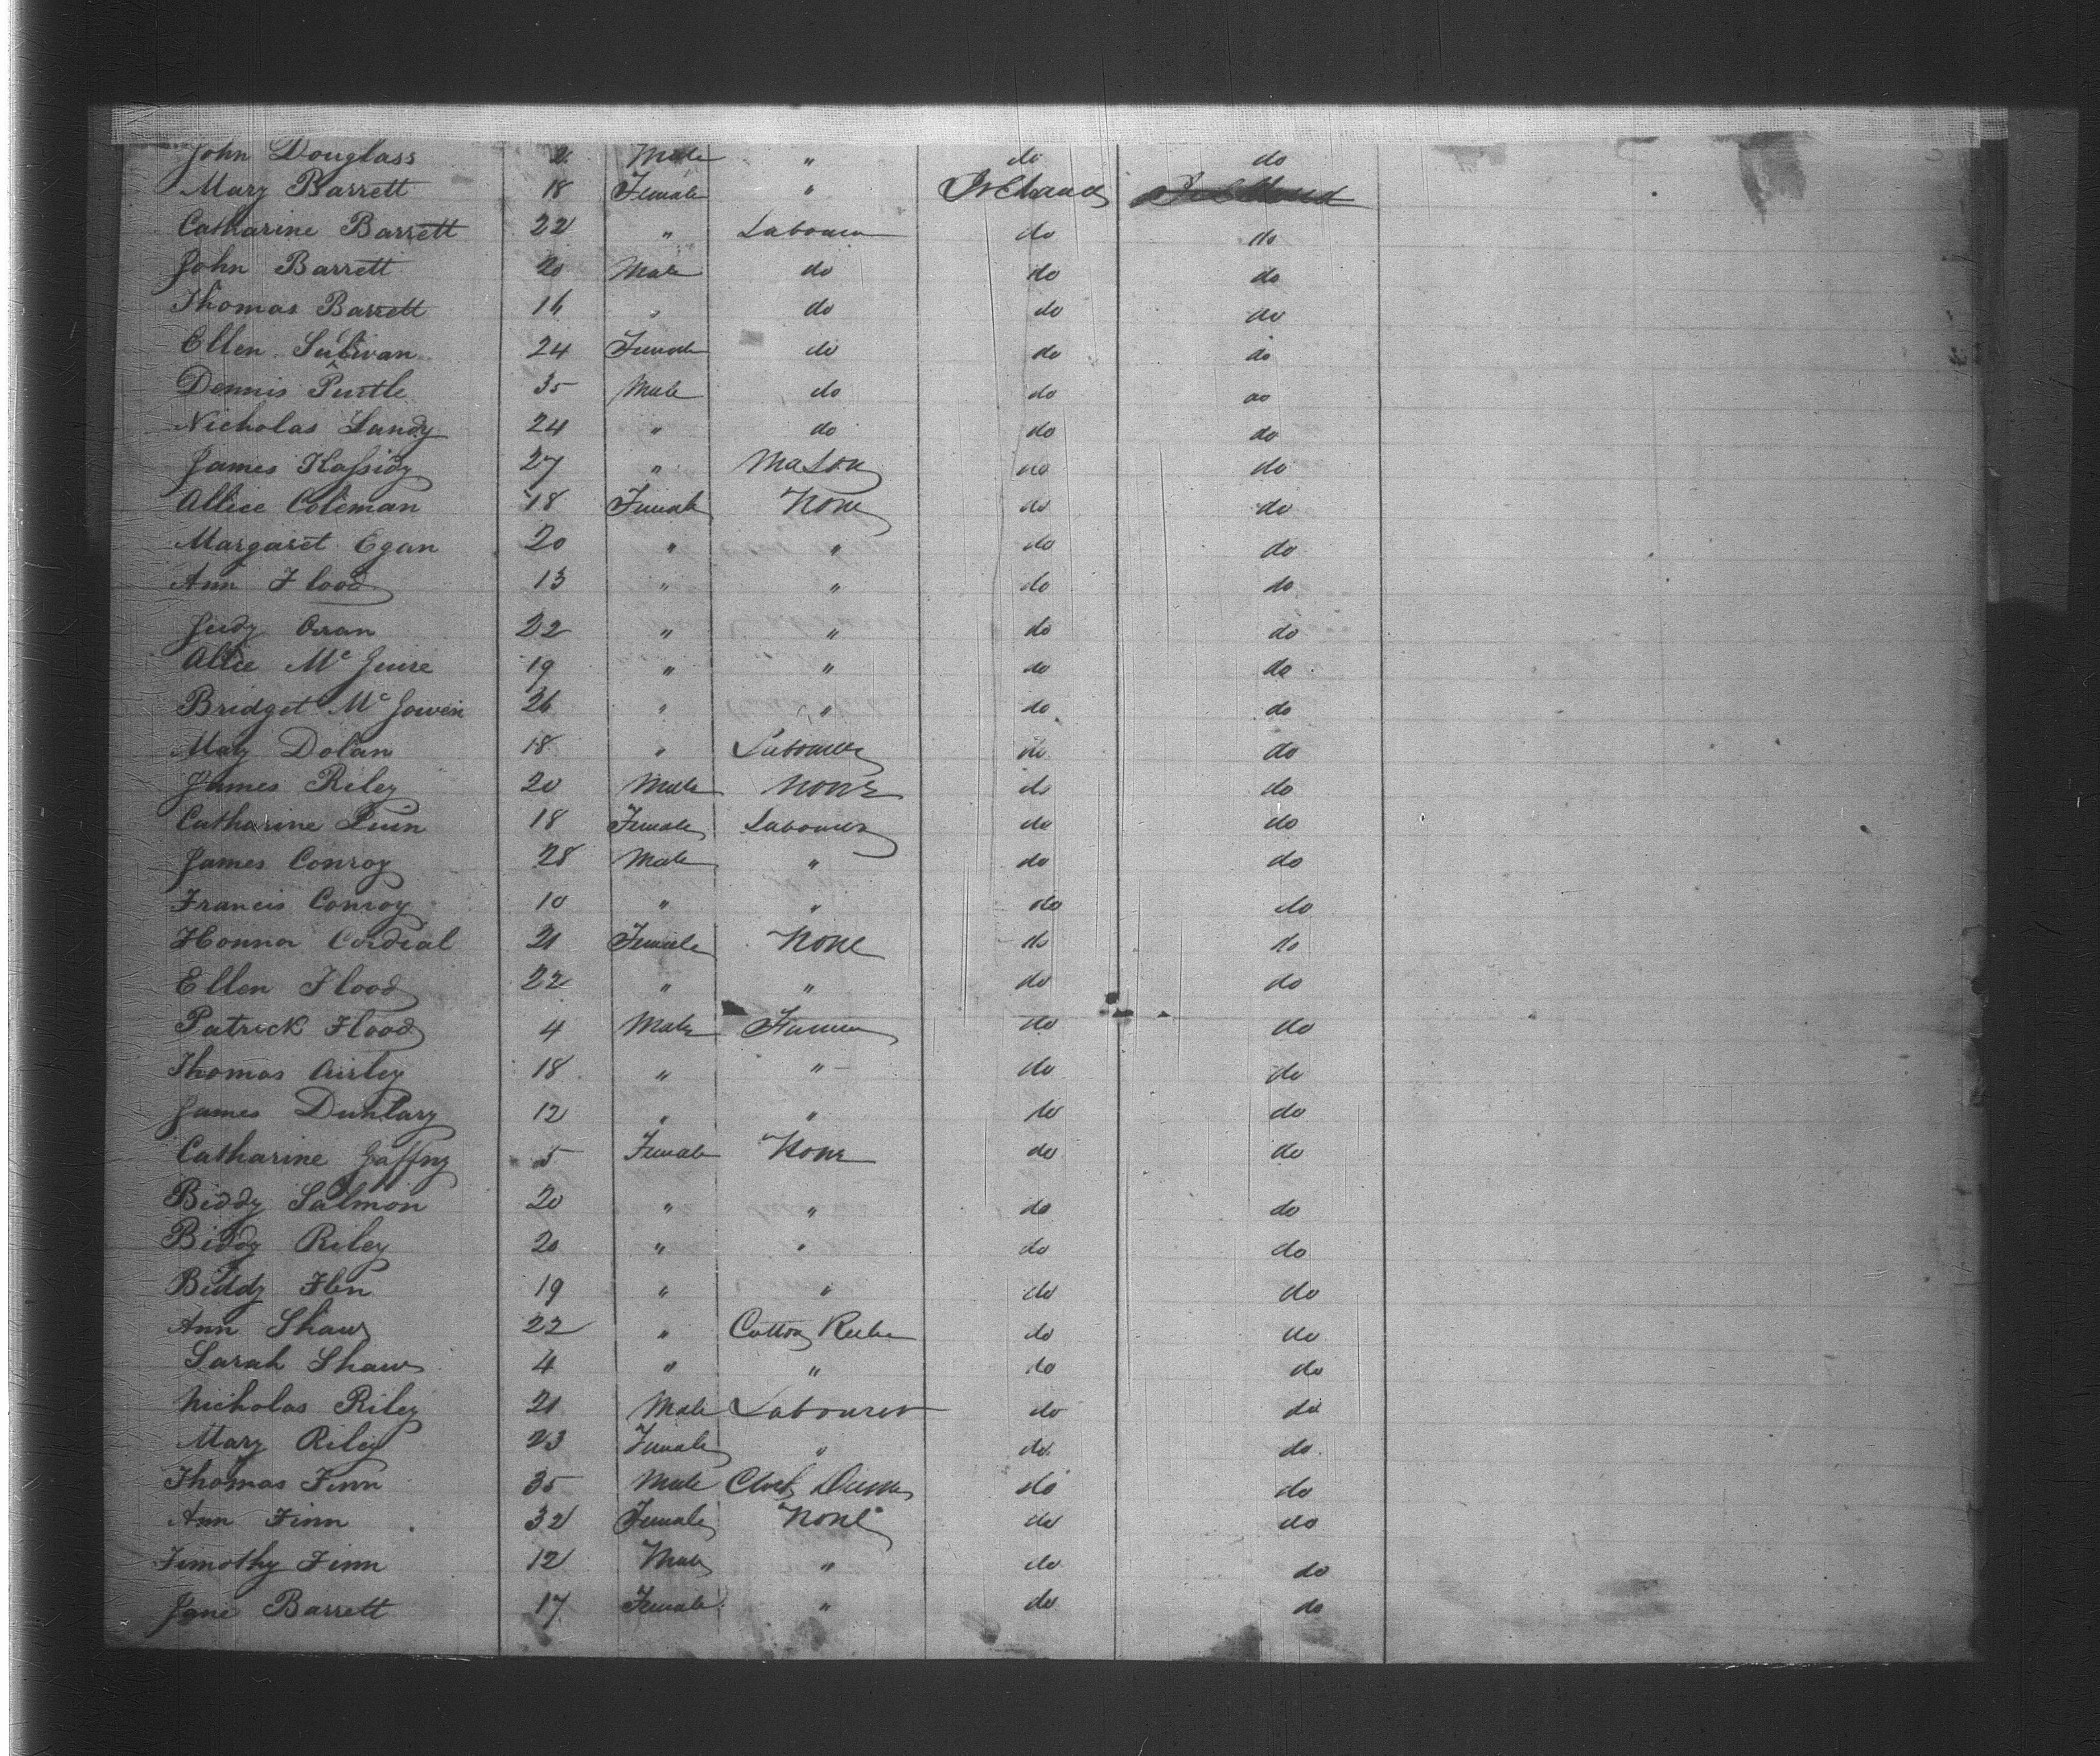 John Douglass 2 Male " do do
Mary Barrett 18 Female " Ireland
Catharine Barrett 22 " Labourer do do
John Barrett 20 Male do do do
Thomas Barrett 16 " do do do
Ellen Sulivan 24 Female do do do
Dennis Purtle 35 Male do do do
Nicholas Landy 24 " do do do
James Kassidy 27 " Mason do do
Allice Coleman 18 Female None do do
Margaret Egan 20 " " do do
Ann Flood 13 " " do do
Judy 22 " " do do
Allie Mc Guire 19 " " do do
Bridget Mc Gowen 26 " " do do
Mary Dolan 18 " Labourer do do
James Riley 20 Male None do do
Catharine 18 Female Labourer do do
James Conroy 28 Male " do do
Francis Conroy 10 " " do do
Honnor Cordial 21 Female None do do
Ellen Flood 22 " " do do
Patrick Flood 4 Male Farmer do do
Thomas Airley 18 " " do do
James Dunlary 12 " " do do
Catharine Gaffny 5 Female None do do
Biddy Salmon 20 " " do do
Biddy Riley 20 " " do do
Biddy 19 " " do do
Ann Shaw 22 " Cotton Reeler do do
Sarah Shaw 4 " " do do
Nicholas Riley 21 Male Labourer do do
Mary Riley 23 Female " do do
Thomas Finn 35 Male do do
Ann Finn 32 Female None do do
Timothy Finn 12 Male " do do
Jane Barrett 17 Female " do do